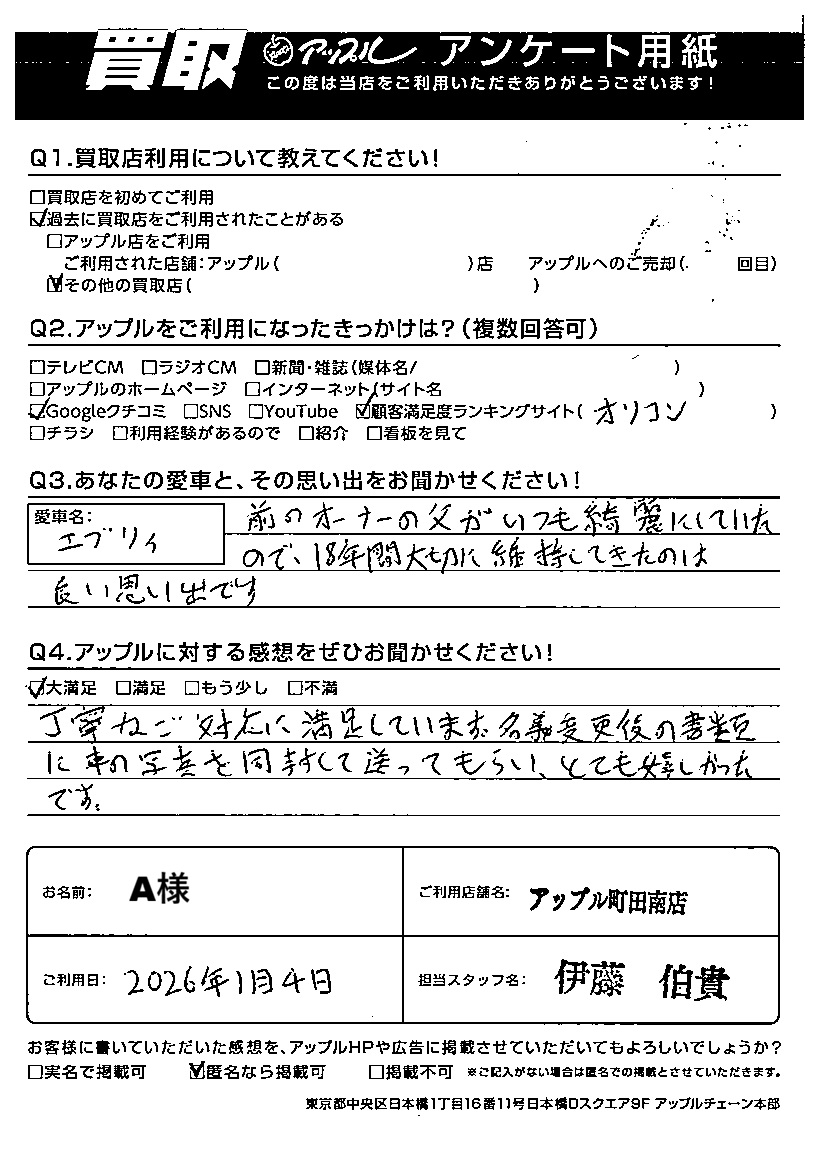 買取 アップル アンケート用紙
この度は当店をご利用いただきありがとうございます!
Q1.買取店利用について教えてください!
□買取店を初めてご利用
☑過去に買取店をご利用されたことがある
□アップル店をご利用
ご利用された店舗:アップル( )店 アップルへのご売却( 回目)
☑その他の買取店( )
Q2.アップルをご利用になったきっかけは?(複数回答可)
□テレビCM □ラジオCM □新聞・雑誌(媒体名/ )
□アップルのホームページ □インターネット(サイト名 )
☑Googleクチコミ □SNS □YouTube ☑顧客満足度ランキングサイト( オリコン )
□チラシ □利用経験があるので □紹介 □看板を見て
Q3.あなたの愛車と、その思い出をお聞かせください!
愛車名:
エブリィ
前のオーナーの父がいつも綺麗にしていた
ので、18年間大切に維持してきたのは
良い思い出です
Q4.アップルに対する感想をぜひお聞かせください!
☑大満足 □満足 □もう少し □不満
丁寧なご対応に満足しています。名義変更後の書類
に車の写真を同封して送ってもらい、とても嬉しかった
です。
お名前: A様
ご利用店舗名: アップル町田南店
ご利用日: 2026年1月4日
担当スタッフ名: 伊藤 伯貴
お客様に書いていただいた感想を、アップルHPや広告に掲載させていただいてもよろしいでしょうか?
□実名で掲載可 ☑匿名なら掲載可 □掲載不可 ※ご記入がない場合は匿名での掲載とさせていただきます。
東京都中央区日本橋1丁目16番11号日本橋Dスクエア9F アップルチェーン本部